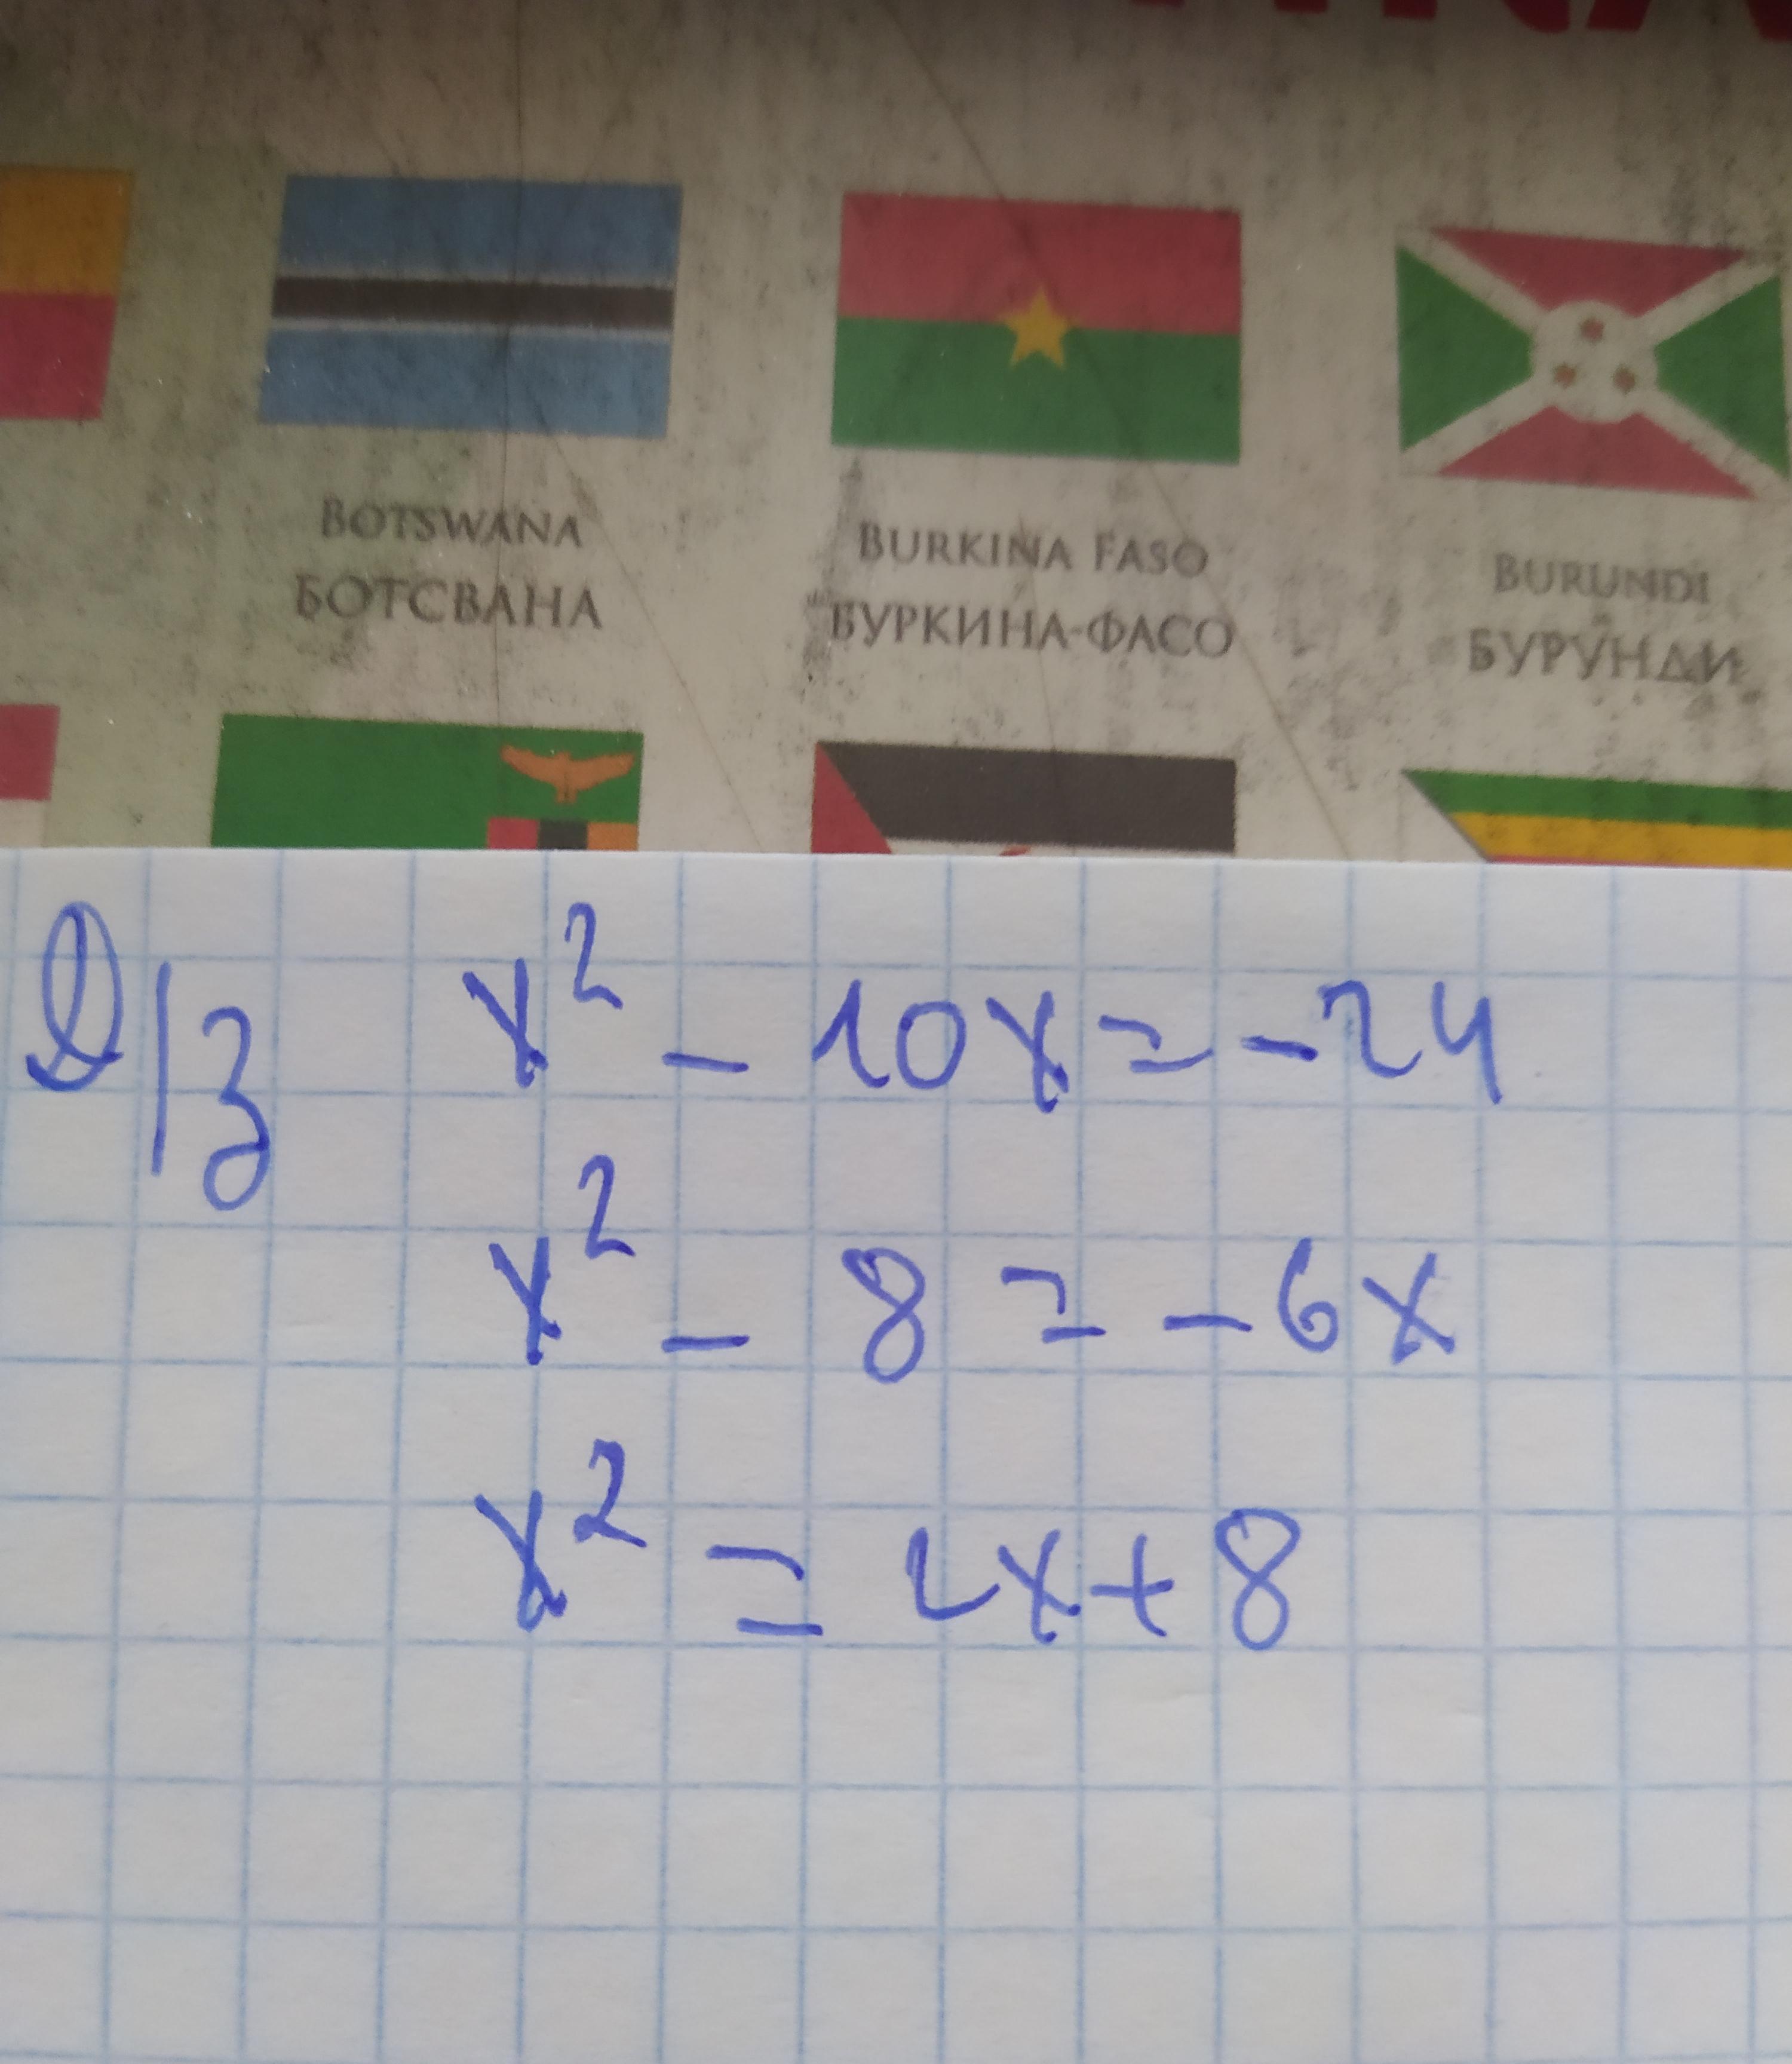 BOTSWANA
БОТСВАНА
BURKINA FASO
БУРКИНА-ФАСО
BURUNDI
БУРУНДИ
Д/з x² - 10x = -24
x² - 8 = -6x
x² = 2x + 8